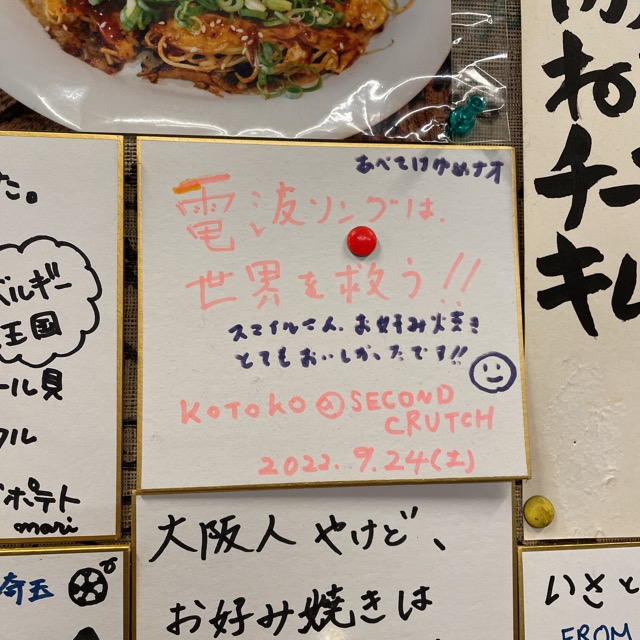 あべたけゆめナオ
電波ソングは、
世界を救う!!
スマイルさん、お好み焼き
とてもおいしかったです!!
KOTOKO @ SECOND
CRUTCH
2022. 9. 24(土)
た。
ベルギー
王国
ール貝
フル
ポテト
mari
埼玉
大阪人 やけど、
お好み焼きは
ね
チー
キム
いさと
FROM